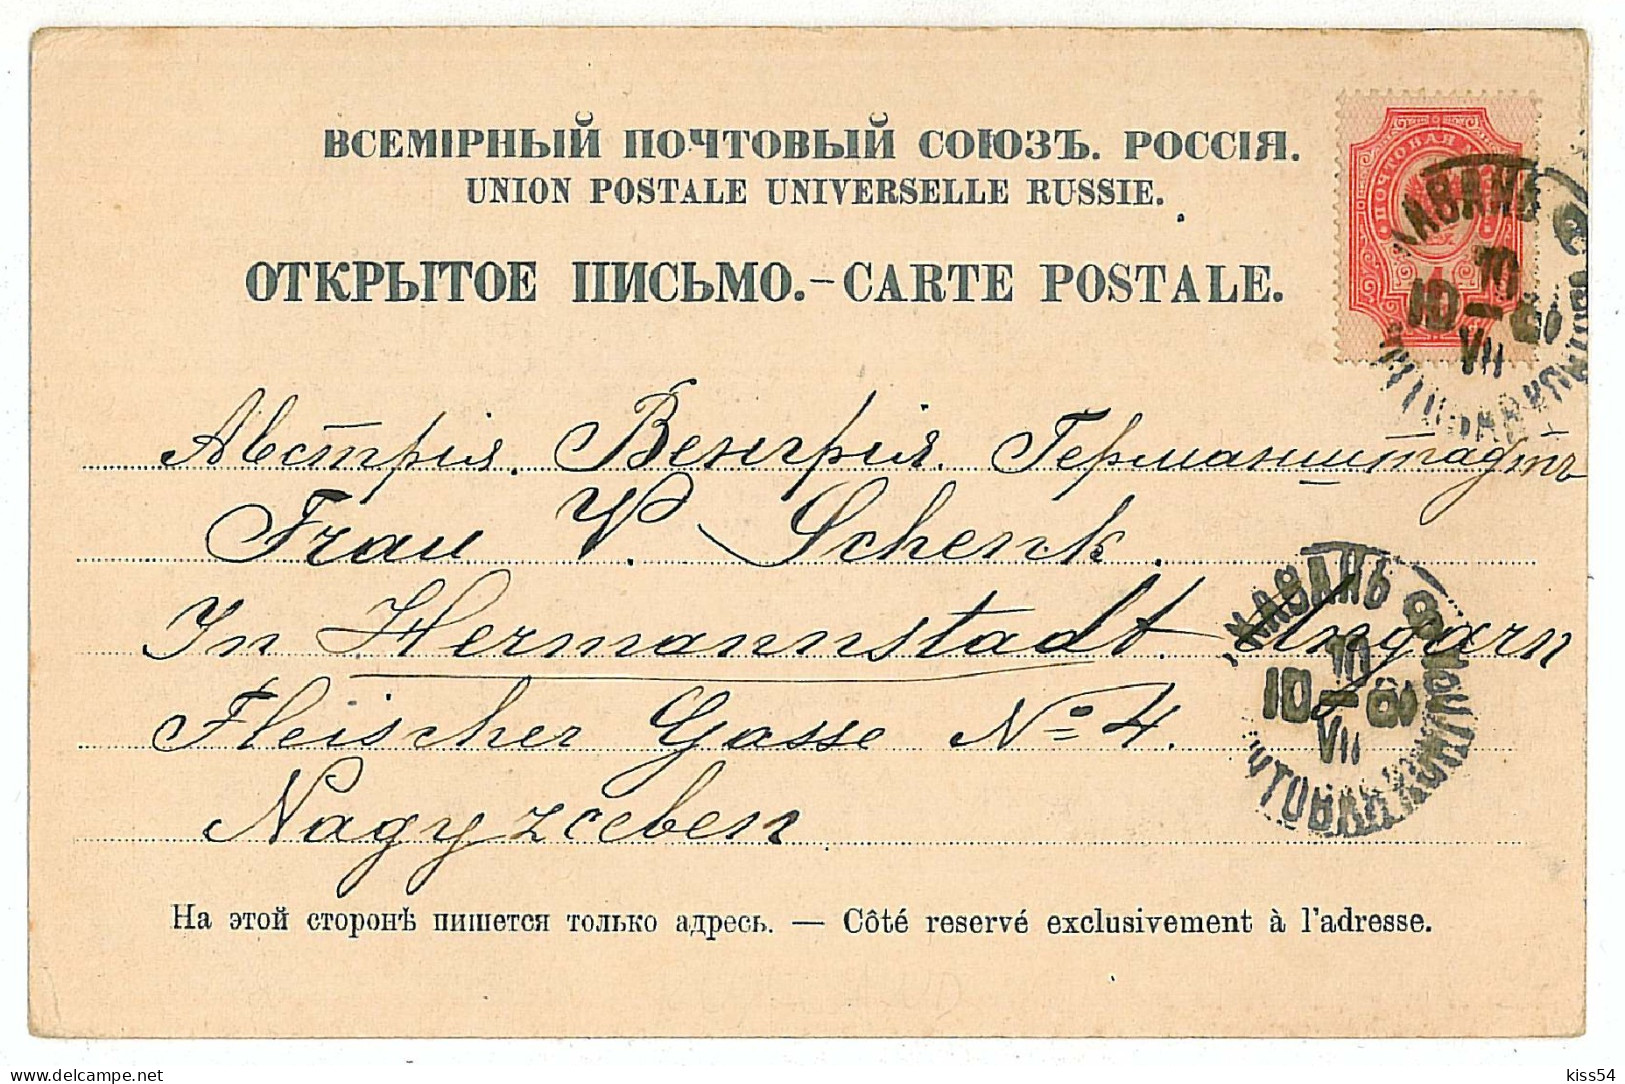 ВСЕМІРНЫЙ ПОЧТОВЫЙ СОЮЗЪ. РОССІЯ.
UNION POSTALE UNIVERSELLE RUSSIE.
ОТКРЫТОЕ ПИСЬМО.–CARTE POSTALE.
ПОЧТОВАЯ
КАЗАНЬ
10
10 – 8
VII
Австрія. Венгрія. Германштадтъ
Frau V. Schenk.
In Hermannstadt. Ungarn
Fleischer Gasse № 4.
Nagyzceben
КАЗАНЬ
10
10 – 8
VII
На этой сторонѣ пишется только адресъ. — Côté reservé exclusivement à l'adresse.
kiss54